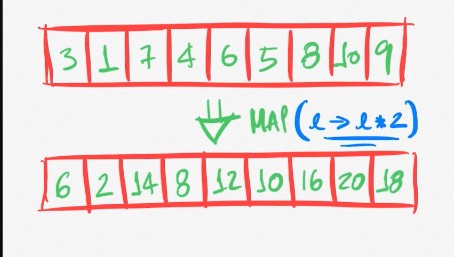 3 1 7 4 6 5 8 10 9
MAP (l → l*2)
6 2 14 8 12 10 16 20 18